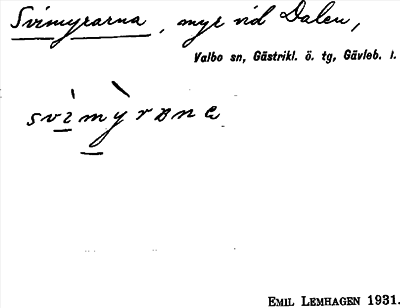 Svimyrarna, myr vid Dalen,
Valbo sn, Gästrikl. ö. tg, Gävleb. l.
EMIL LEMHAGEN 1931.